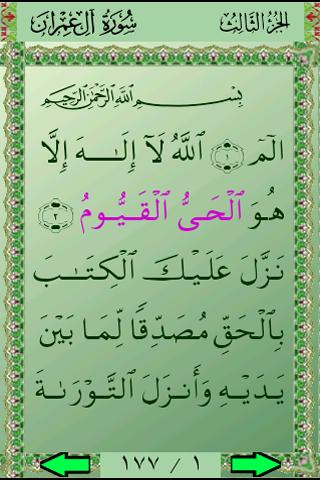 الجزء الثالث
سورة آل عمران
بِسْمِ اللَّهِ الرَّحْمَٰنِ الرَّحِيمِ
الٓمٓ ١ ٱللَّهُ لَآ إِلَـٰهَ إِلَّا
هُوَ ٱلْحَىُّ ٱلْقَيُّومُ ٢
نَزَّلَ عَلَيْكَ ٱلْكِتَـٰبَ
بِٱلْحَقِّ مُصَدِّقًا لِّمَا بَيْنَ
يَدَيْهِ وَأَنزَلَ ٱلتَّوْرَىٰةَ
١ / ١٧٧